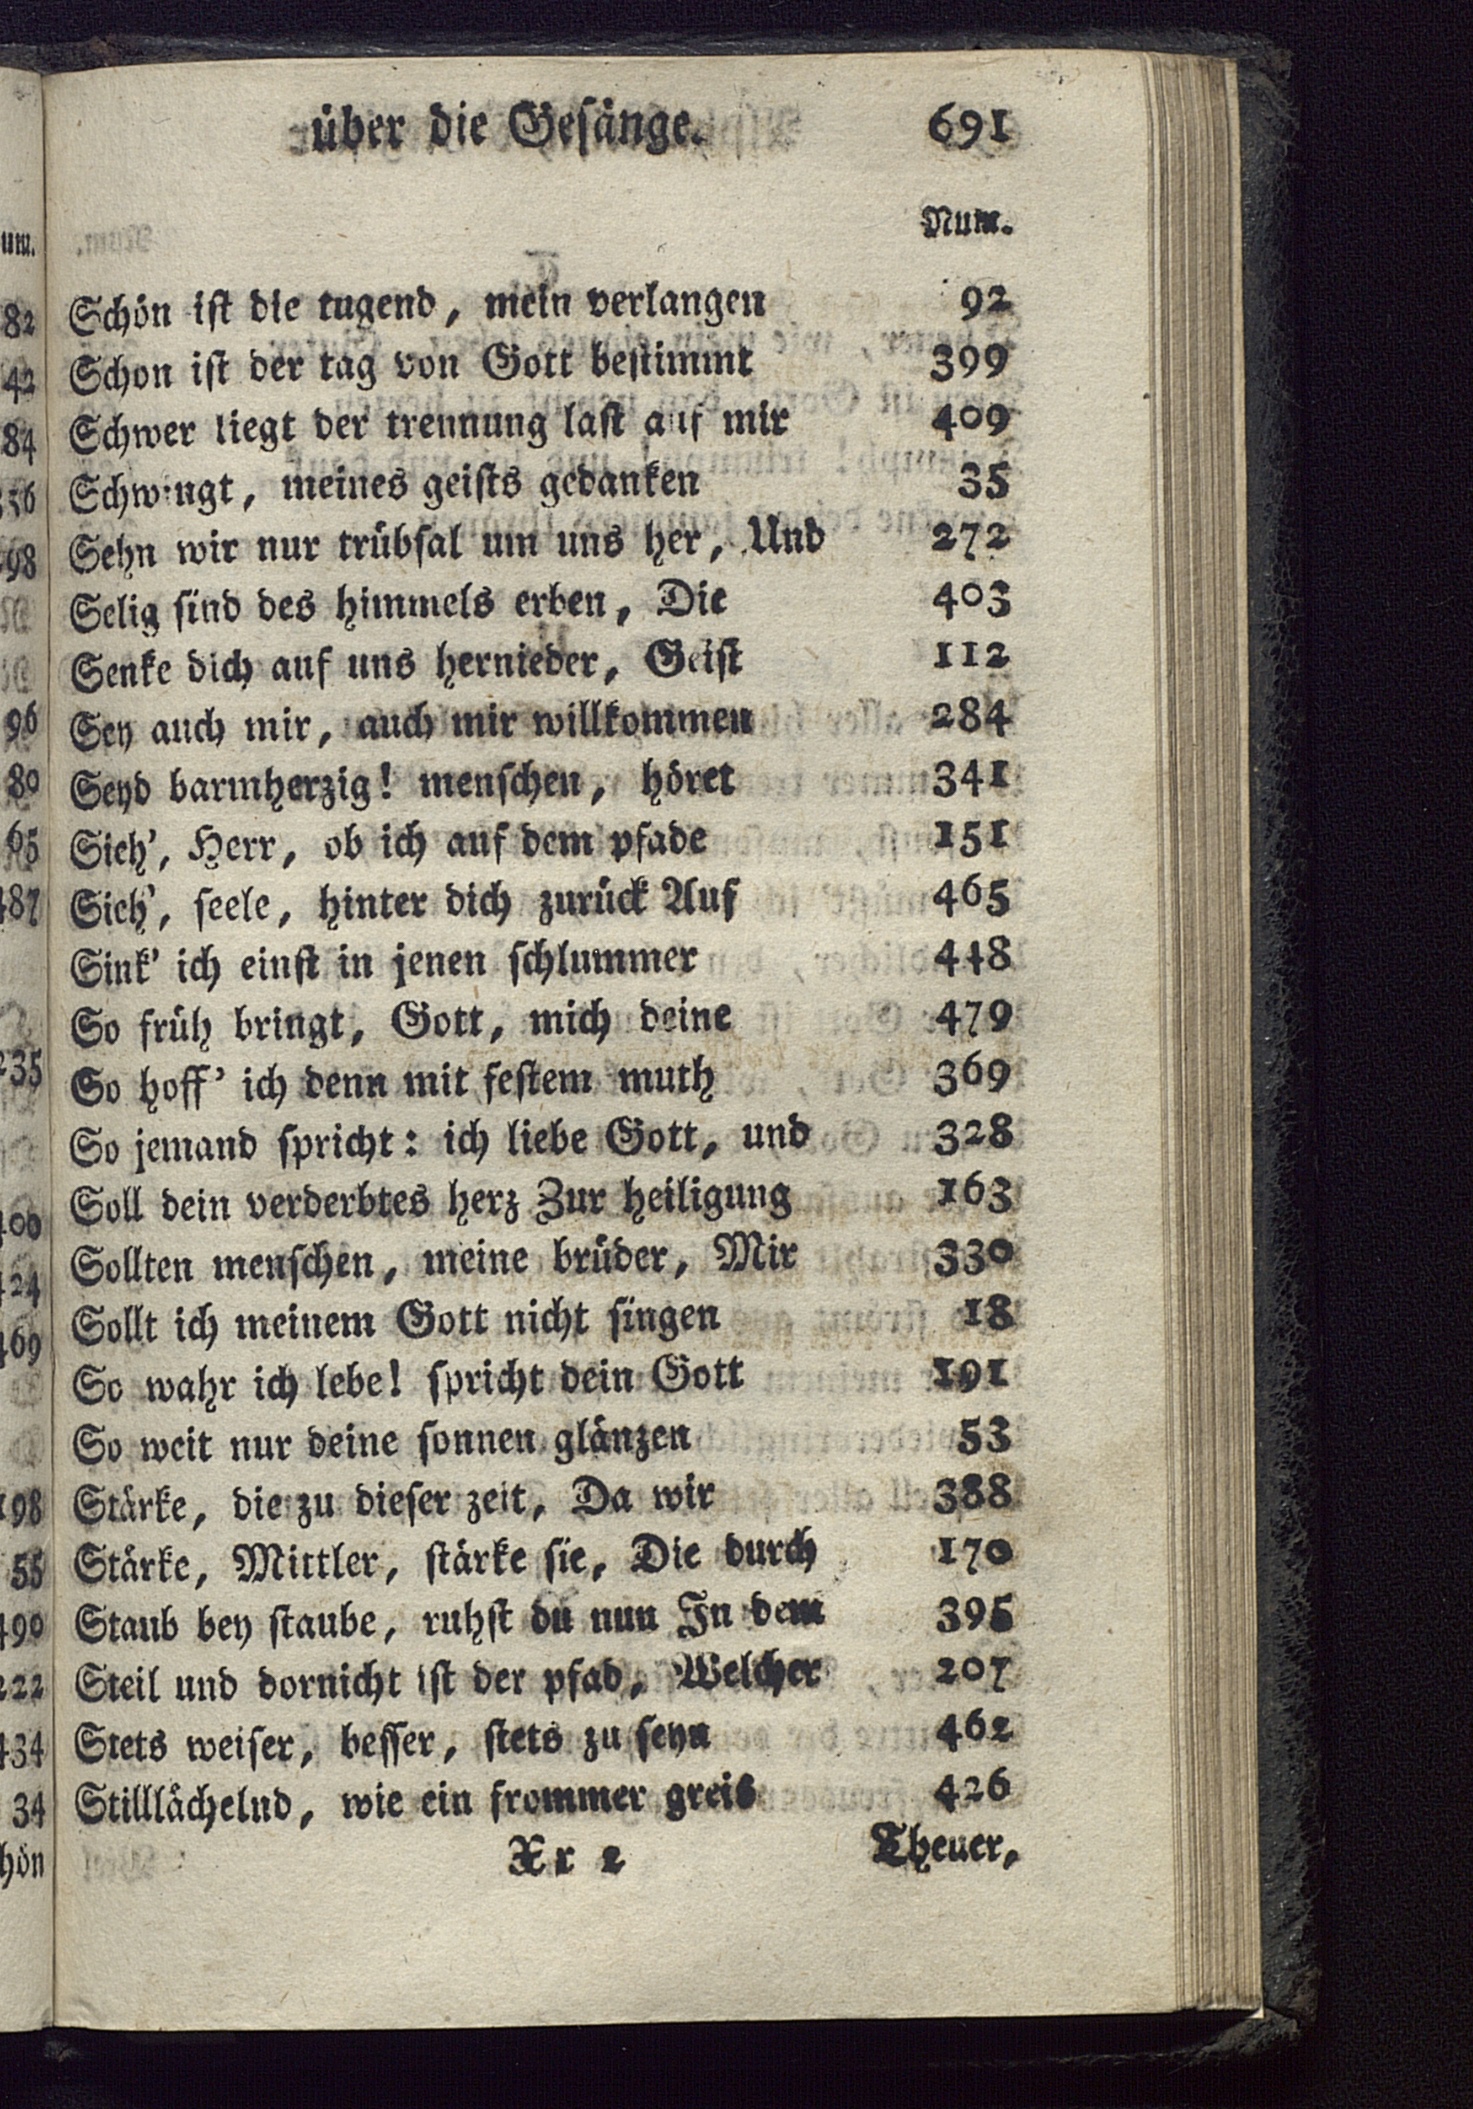 über die Gesänge. 691
Num.
Schön ist die tugend, mein verlangen 92
Schon ist der tag von Gott bestimmt 399
Schwer liegt der trennung last auf mir 409
Schwingt, meines geists gedanken 35
Sehn wir nur trübsal um uns her, Und 272
Selig sind des himmels erben, Die 403
Senke dich auf uns hernieder, Geist 112
Sey auch mir, auch mir willkommen 284
Seyd barmherzig! menschen, höret 341
Sieh', Herr, ob ich auf dem pfade 151
Sieh', seele, hinter dich zurück Auf 465
Sink' ich einst in jenen schlummer 448
So früh bringt, Gott, mich deine 479
So hoff' ich denn mit festem muth 369
So jemand spricht: ich liebe Gott, und 328
Soll dein verderbtes herz Zur heiligung 163
Sollten menschen, meine brüder, Mir 330
Sollt ich meinem Gott nicht singen 18
So wahr ich lebe! spricht dein Gott 191
So weit nur deine sonnen glänzen 53
Stärke, die zu dieser zeit, Da wir 388
Stärke, Mittler, stärke sie, Die durch 170
Staub bey staube, ruhst du nun In dem 395
Steil und dornicht ist der pfad, Welcher 207
Stets weiser, besser, stets zu seyn 462
Stilllächelnd, wie ein frommer greis 426
Xr 2 Theuer,